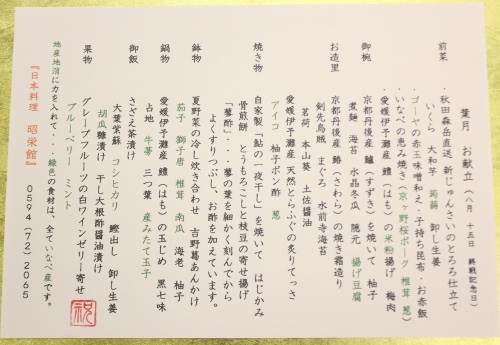 葉月　お献立（八月　十五日　終戦記念日）
前菜　・秋田森岳直送　新じゅんさいのとろろ仕立て
いくら　大和芋　蒟蒻　卸し生姜
・ゴーヤの赤玉味噌和え・子持ち昆布・お赤飯
・いなべの恵み焼き（京ヶ野桜ポーク　椎茸　葱）
愛媛伊予灘産　鱧（はも）の米粉揚げ　梅肉
御椀　京都丹後産　鱸（すずき）を焼いて　柚子
煮麺　海苔　水晶冬瓜　隠元　揚げ豆腐
お造里　京都丹後産　鰆（さわら）の焼き霜造り
剣先烏賊　まぐろ　水前寺海苔
茗荷　本山葵　土佐醤油
愛媛伊予灘産　天然とらふぐの炙りてっさ
アイコ　柚子ポン酢　葱
焼き物　自家製「鮎の一夜干し」を焼いて　はじかみ
骨煎餅　とうもろこしと枝豆の寄せ揚げ
「蓼酢」・・・蓼の葉を細かく刻んでから
よくすりつぶし、お酢を加えています。
鉢物　夏野菜の冷し炊き合わせ　吉野葛あんかけ
茄子　獅子唐　椎茸　南瓜　海老　柚子
鍋物　愛媛伊予灘産　鱧（はも）の玉じめ　黒七味
占地　牛蒡　三つ葉　産みたて玉子
御飯　さざえ茶漬け
大葉紫蘇　コシヒカリ　鰹出し　卸し生姜
胡瓜糠漬け　干し大根酢醤油漬け
果物　グレープフルーツの白ワインゼリー寄せ
ブルーベリー　ミント
地産地消に力を入れて・・・緑色の食材は、全ていなべ産です。
『日本料理　昭栄館』　０５９４（７２）２０６５
祝